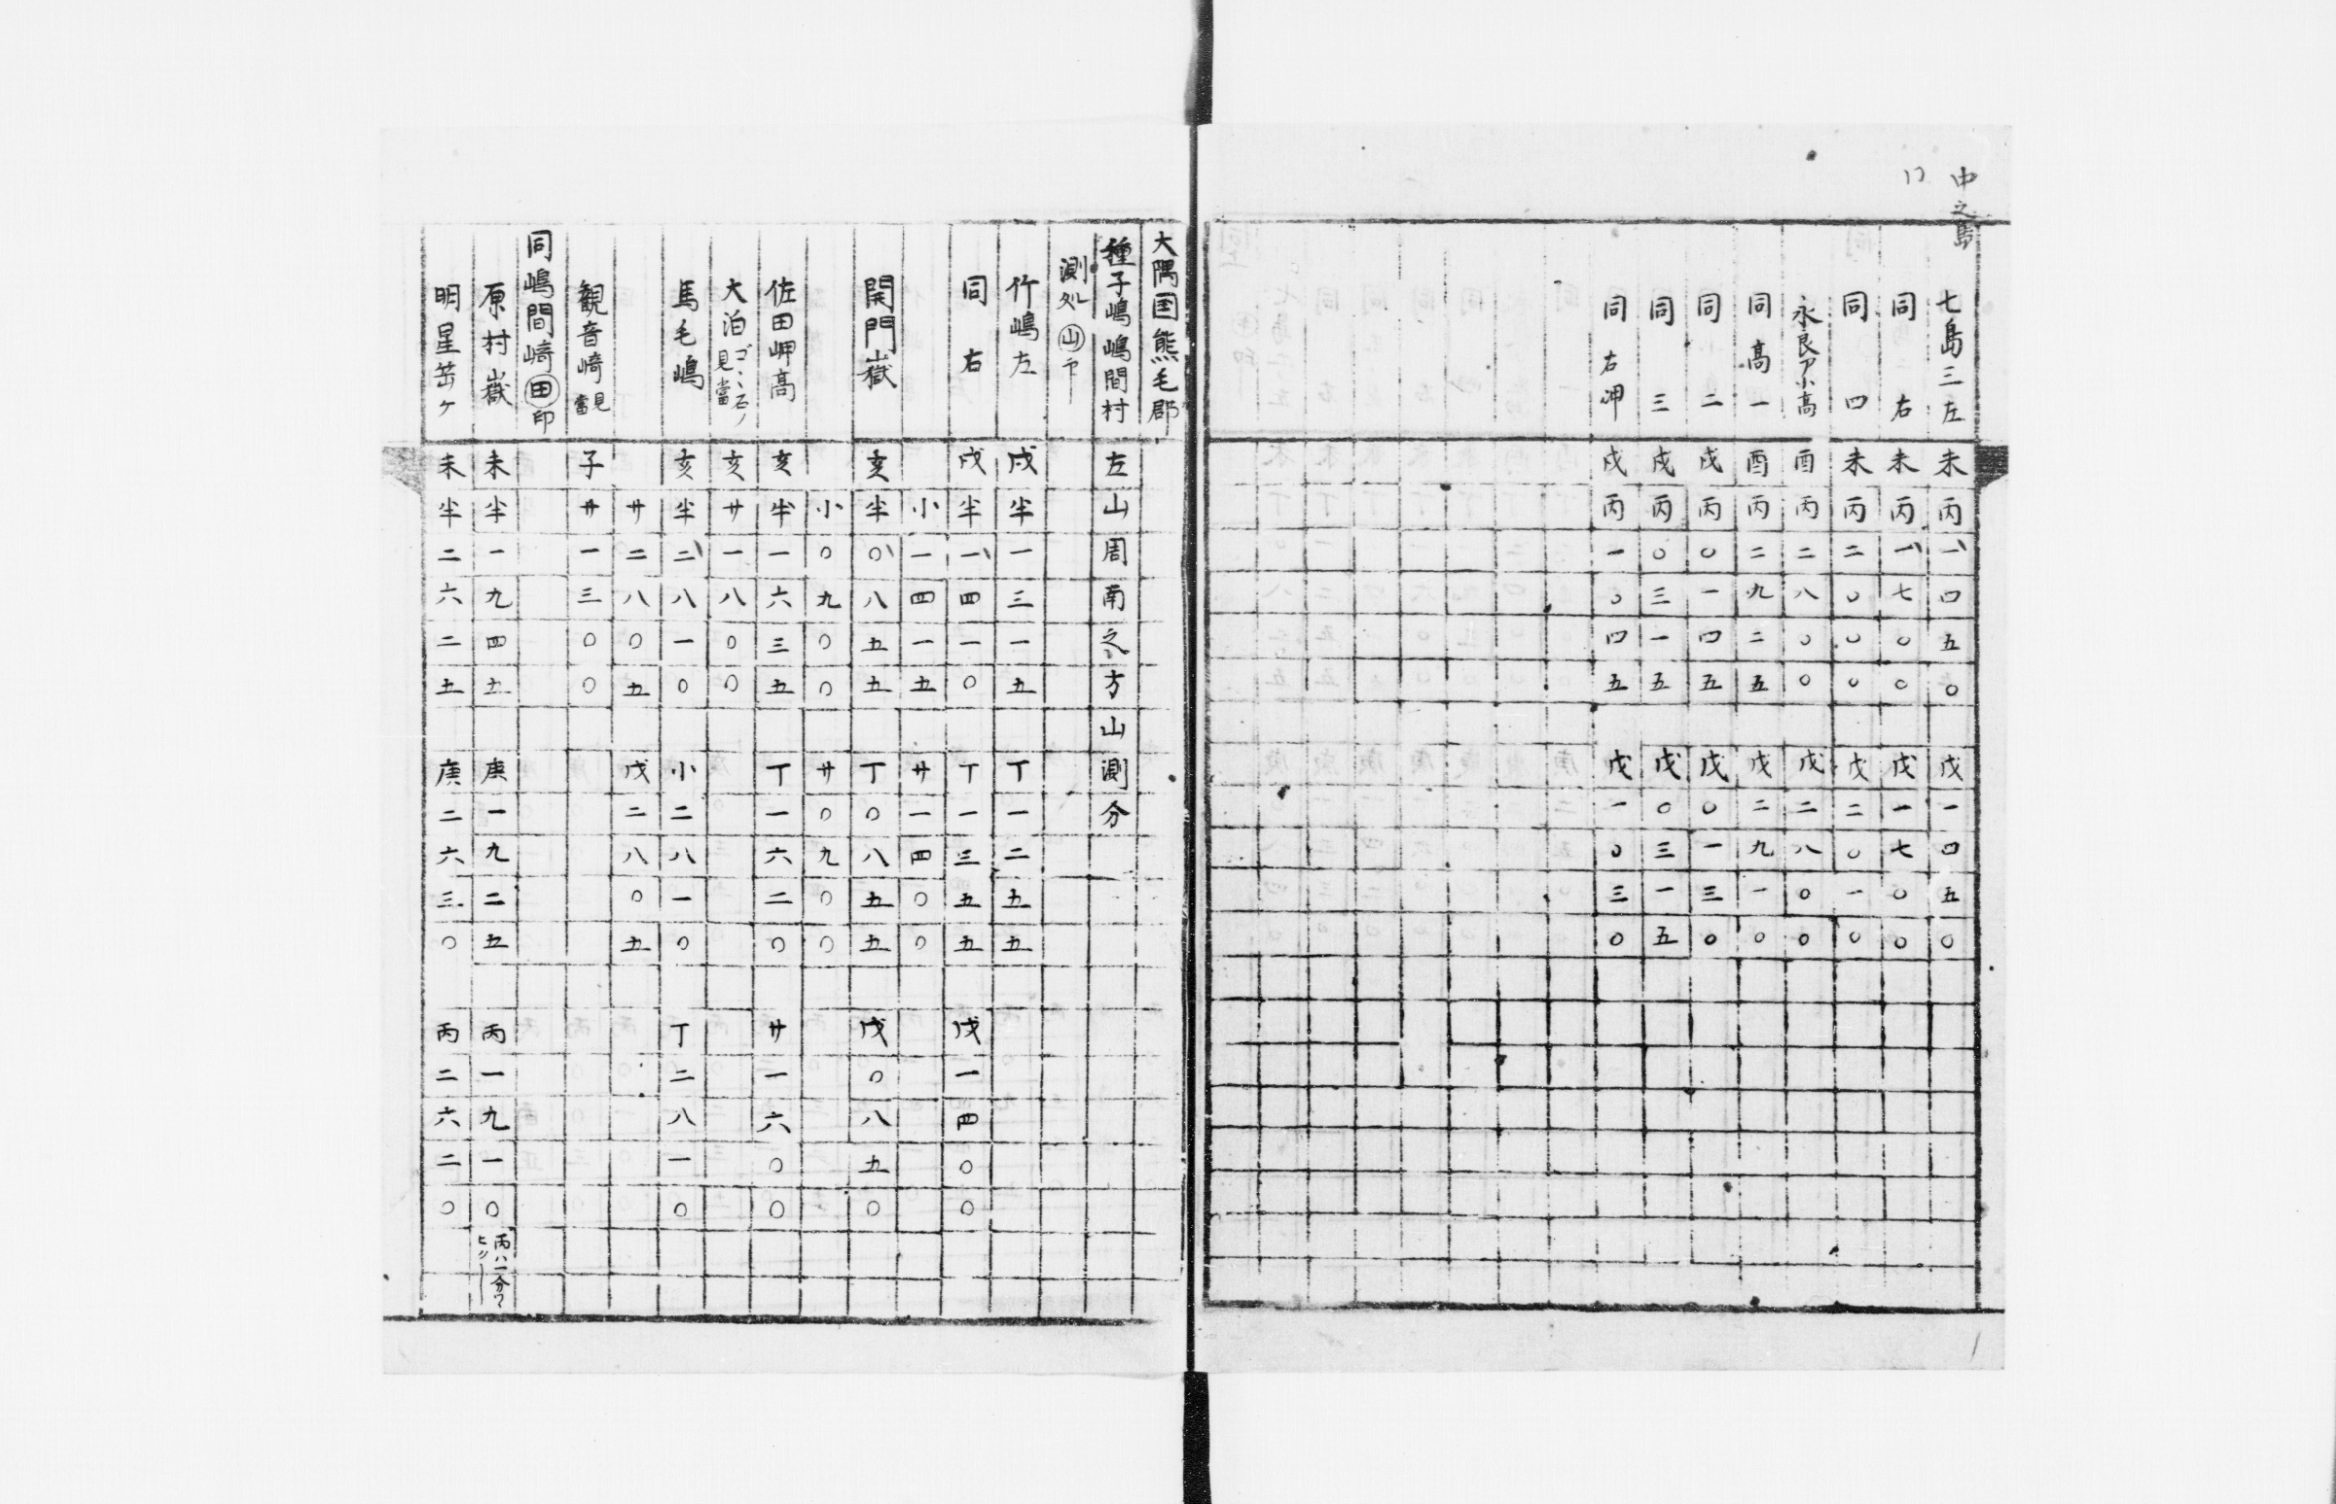 中之島
七島三左 未丙一四五〇 戊一四五〇
同右 未丙一七〇〇 戊一七〇〇
同四 未丙二〇〇〇 戊二〇一〇
永良ア小高 酉丙二八〇〇 戊二八〇〇
同高一 酉丙二九二五 戊二九一〇
同二 戌丙〇一四五 戊〇一三〇
同三 戌丙〇三一五 戊〇三一五
同右岬 戌丙一〇四五 戊一〇三〇
大隅国熊毛郡
種子嶋嶋間村左山周南之方山測分
測処㊥山印
竹嶋左 戌半一三一五 丁一二五五
同右 戌半一四一〇 丁一三五五 戊一四〇〇
小一四一五 サ一四〇〇
開門嶽 亥半〇八五五 丁〇八五五 戊〇八五〇
小〇九〇〇 サ〇九〇〇
佐田岬高 亥半一六三五 丁一六二〇 サ一六〇〇
大泊ゴヽ石ノ見當 亥サ一八〇〇
馬毛嶋 亥半二八一〇 小二八一〇 丁二八一〇
サ二八〇五 戊二八〇五
観音崎見當 子サ一三〇〇
同嶋間崎田印
原村嶽 未半一九四五 庚一九二五 丙一九一〇 丙ハ一分ワ
明星笛ケ 未半二六二五 庚二六三〇 丙二六二〇